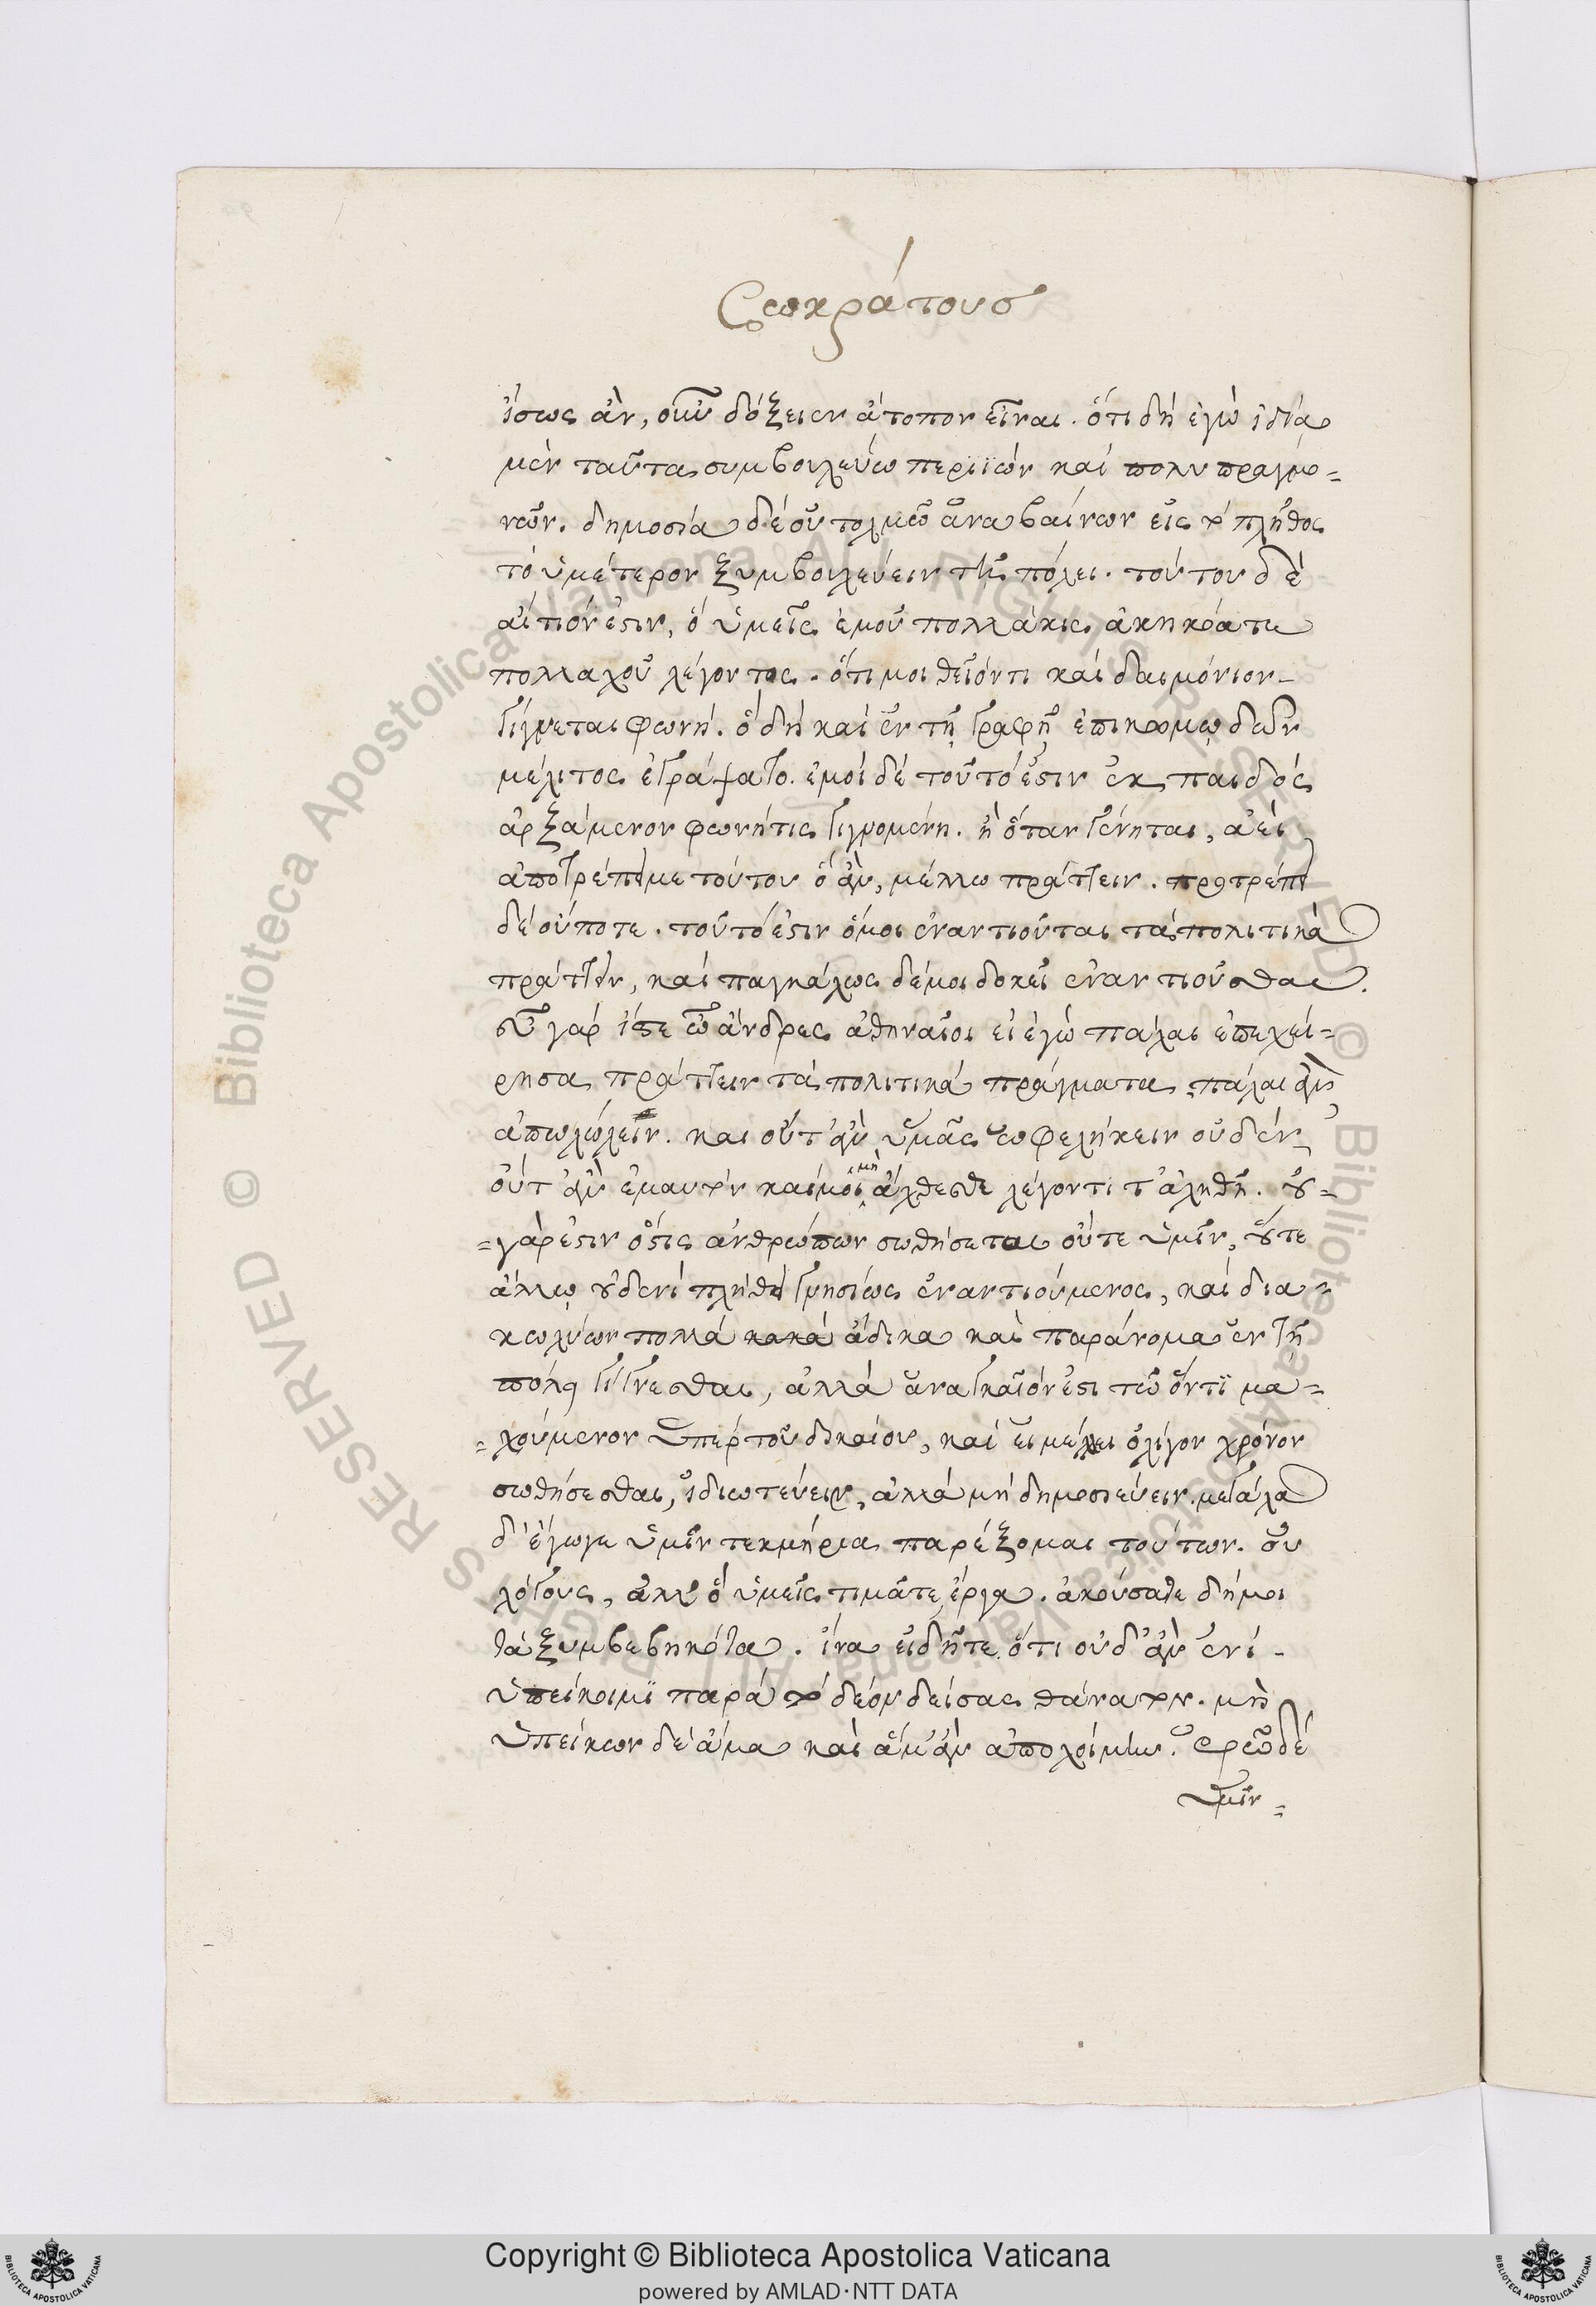 Σωκράτους
ἴσως ἂν, οὖν δόξειεν ἄτοπον εἶναι. ὅτι δὴ ἐγὼ ἰδία
μὲν ταῦτα συμβουλεύω περιϊών καί πολυπραγμο-
νῶν. δημοσία δέ οὐ τολμῶ ἀναβαίνων εἰς τὸ πλῆθος
τό ὑμέτερον ξυμβουλεύειν τῇ πόλει. τούτου δὲ
αἴτιόν ἐστιν, ὅ ὑμεῖς ἐμοῦ πολλάκις ἀκηκόατε
πολλαχοῦ λέγοντος. ὅτι μοι θεῖόντι καί δαιμόνιον
γίγνεται φωνή. ὅ δὴ καί ἐν τῇ γραφῇ ἐπικωμῳδῶν
μέλιτος ἐγράψατο. ἐμοί δέ τοῦτό ἐστιν ἐκ παιδός
ἀρξάμενον φωνήτις γιγνομένη. ἢ ὅταν γένηται, ἀεὶ
ἀποτρέπει με τούτου ὅ ἂν, μέλλω πράττειν. προτρέπει
δέ οὔποτε. τοῦτό ἐστιν ὅ μοι ἐναντιοῦται τά πολιτικά
πράττειν, καί παγκάλως δέ μοι δοκεῖ ἐναντιοῦσθαι.
εὖ γάρ ἴστε ὦ ἄνδρες ἀθηναῖοι εἰ ἐγώ πάλαι ἐπεχεί-
ρησα πράττειν τά πολιτικά πράγματα, πάλαι ἂν
ἀπωλώλειν. και οὔτ' ἂν ὑμᾶς ὠφελήκειν οὐδέν
οὔτ' ἂν ἐμαυτόν καί μοι μὴ ἄχθεσθε λέγοντι τ' ἀληθῆ. οὐ-
=γάρ ἐστιν ὅστις ἀνθρώπων σωθήσεται οὔτε ὑμῖν, οὔτε
ἄλλῳ οὐδενί πλήθει γνησίως ἐναντιούμενος, καί δια-
κωλύων πολλά κακά ἄδικα καὶ παράνομα ἐν τῇ
πόλει γίγνεσθαι, ἀλλά ἀναγκαῖόν ἐστι τῷ ὄντϊ μα-
=χούμενον ὑπέρ τοῦ δικαίου, καί εἰ μέλλει ὀλίγον χρόνον
σωθήσεσθαι, ἰδιωτεύειν, ἀλλά μή δημοσιεύειν. μεγάλα
δ' ἔγωγε ὑμῖν τεκμήρια παρέξομαι τούτων. οὐ
λόγους, ἀλλ' ὅ ὑμεῖς τιμᾶτε, ἔργα. ἀκούσατε δή μοι
τά ξυμβεβηκότα. ἵνα εἰδῆτε ὅτι οὐδ' ἂν ἑνί
ὑπείκοιμϊ παρά τό δέον δείσας θάνατον. μὴ
ὑπείκων δέ ἅμα καὶ ἅμ' ἂν ἀπολοίμην. ἐρῶ δέ
ὑμῖν=
Copyright © Biblioteca Apostolica Vaticana
powered by AMLAD·NTT DATA